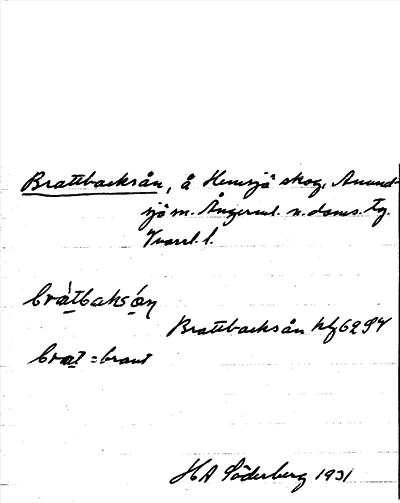 Brattbacksån, å Hemsjö skog, Anund-
sjö m. Ångerml. n. doms. tg.
Tvarrl. l.
bràtbaksán
Brattbacksån hlf 6294
brat = brant
HA Söderberg 1931